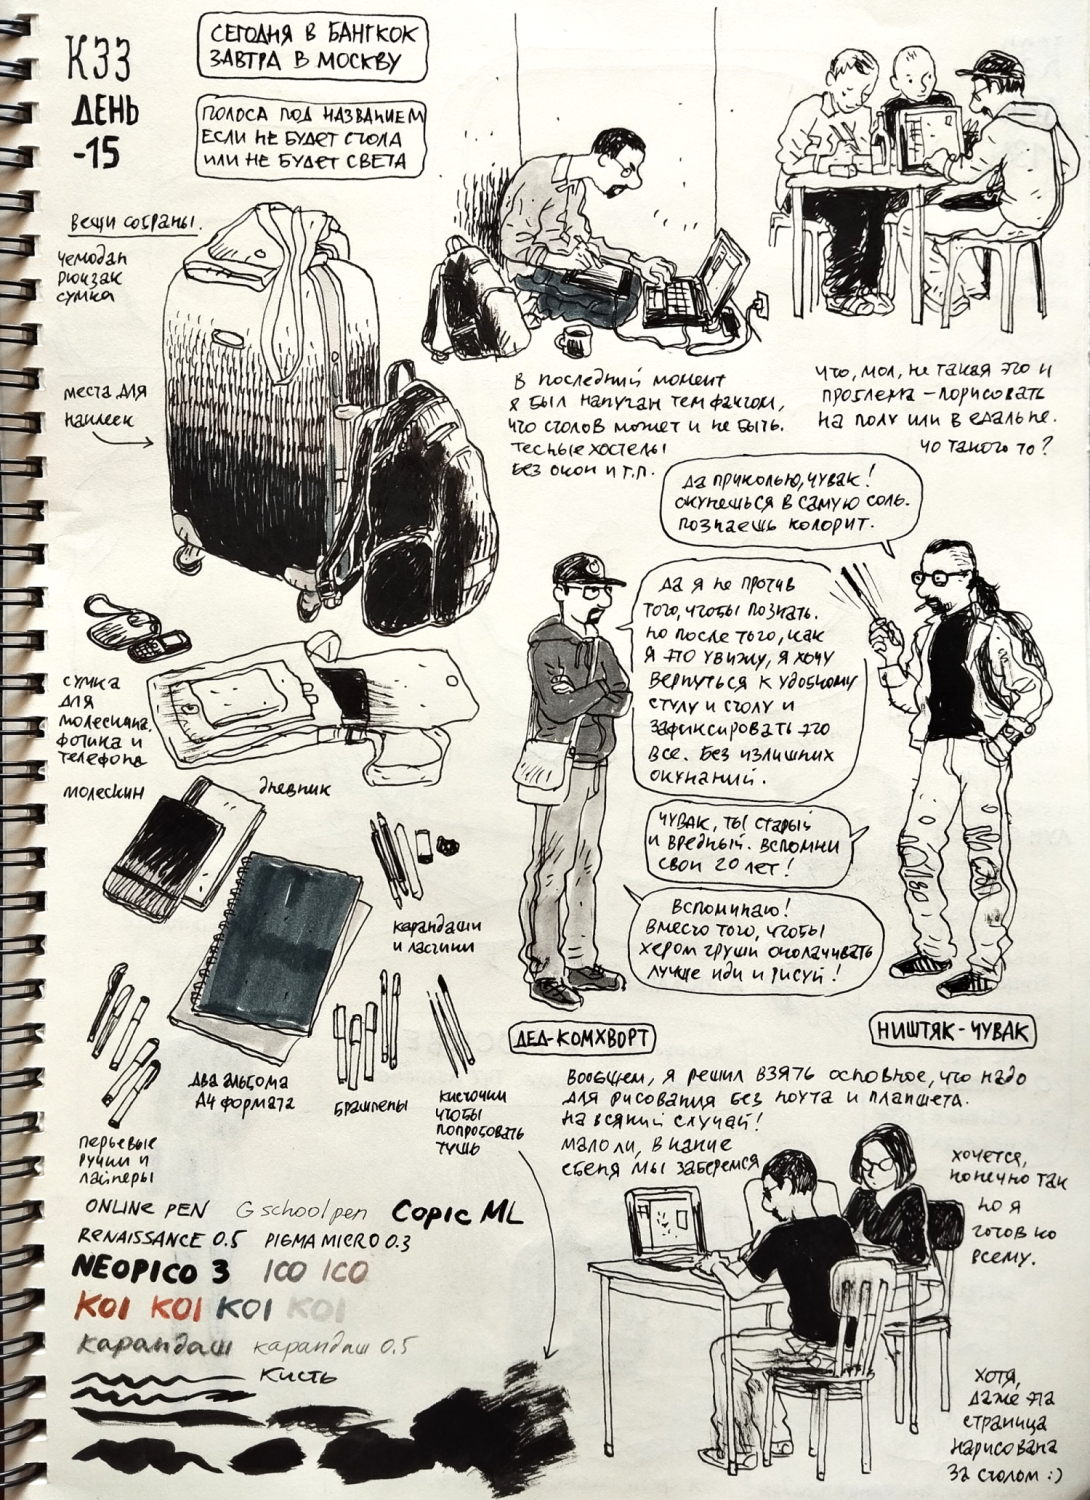 КЗЗ
ДЕНЬ
-15
СЕГОДНЯ В БАНГКОК
ЗАВТРА В МОСКВУ
ПОЛОСА ПОД НАЗВАНИЕМ
ЕСЛИ НЕ БУДЕТ СТОЛА
ИЛИ НЕ БУДЕТ СВЕТА
вещи собраны.
чемодан
рюкзак
сумка
места для
наклеек
В последний момент
я был напуган тем фактом,
что столов может и не быть.
Тесные хостелы
без окон и т.п.
Что, мол, не такая это и
проблема – порисовать
на полу или в едальне.
Чо такого то?
Да прикольно, чувак!
Окунешься в самую соль.
Познаешь колорит.
Да я не против
того, чтобы познать.
Но после того, как
я это увижу, я хочу
вернуться к удобному
стулу и столу и
зафиксировать это
все. Без излишних
окунаний.
Чувак, ты старый
и вредный. Вспомни
свои 20 лет!
Вспоминаю!
Вместо того, чтобы
хером груши околачивать
лучше иди и рисуй!
ДЕД-КОМХВОРТ
НИШТЯК-ЧУВАК
сумка
для
молескина,
фотика и
телефона
молескин
дневник
карандаши
и ластики
два альбома
А4 формата
брашпены
кисточки
чтобы
попробовать
тушь
перьевые
ручки и
лайнеры
Вообщем, я решил взять основное, что надо
для рисования без ноута и планшета.
На всякий случай!
Мало ли, в какие
ебеня мы заберемся
хочется,
конечно так
но я
готов ко
всему.
ONLINE PEN G school pen Copic ML
RENAISSANCE 0.5 PIGMA MICRO 0.3
NEOPICO 3 ICO ICO
KOI KOI KOI KOI
карандаш карандаш 0.5
Кисть
Хотя,
даже эта
страница
нарисована
за столом :)